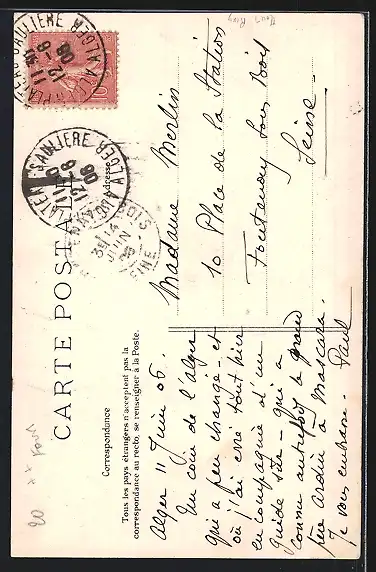 CARTE POSTALE
Correspondance
Adresse
Tous les pays étrangers n'acceptent pas la
correspondance au recto, se renseigner à la Poste.
Alger 11 Juin 06.
Un coin de l'alger
qui a peu changé - et
où j'ai erré tout hier
en compagnie d'un
guide sûr - qui a
connu autrefois le grand
père Ardin à Mascara.
Je vous embrasse. Paul
Madame Merlin
10 Place de la Station
Fontenay sous Bois
Seine.
ALGER
12-6
06
ALGER
12-6
06
14
JUIN
06
SEINE
10
20